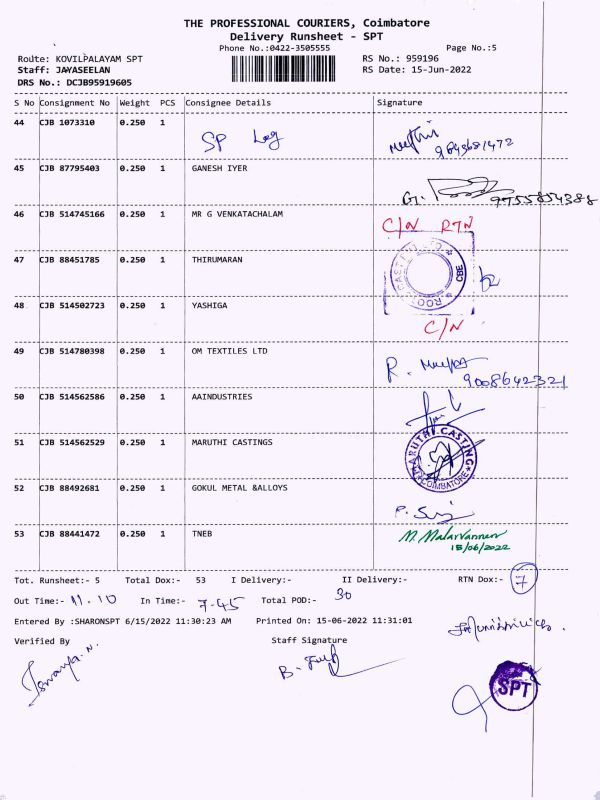 THE PROFESSIONAL COURIERS, Coimbatore
Delivery Runsheet - SPT
Phone No.:0422-3505555 Page No.:5
Route: KOVILPALAYAM SPT RS No.: 959196
Staff: JAYASEELAN RS Date: 15-Jun-2022
DRS No.: DCJB95919605
S No Consignment No Weight PCS Consignee Details Signature
44 CJB 1073310 0.250 1 SP Log 9849681472
45 CJB 87795403 0.250 1 GANESH IYER
G. 9755854388
46 CJB 514745166 0.250 1 MR G VENKATACHALAM
C/N RTN
47 CJB 88451785 0.250 1 THIRUMARAN
ROOTS CASTING LTD CBE
48 CJB 514502723 0.250 1 YASHIGA
C/N
49 CJB 514780398 0.250 1 OM TEXTILES LTD
R. 9008642321
50 CJB 514562586 0.250 1 AAINDUSTRIES
51 CJB 514562529 0.250 1 MARUTHI CASTINGS
MARUTHI CASTING COIMBATORE
52 CJB 88492681 0.250 1 GOKUL METAL &ALLOYS
53 CJB 88441472 0.250 1 TNEB M. Malarvannan
15/06/2022
Tot. Runsheet:- 5 Total Dox:- 53 I Delivery:- II Delivery:- RTN Dox:- 7
Out Time:- 11.10 In Time:- 7-45 Total POD:- 30
Entered By :SHARONSPT 6/15/2022 11:30:23 AM Printed On: 15-06-2022 11:31:01
Verified By Staff Signature
SPT